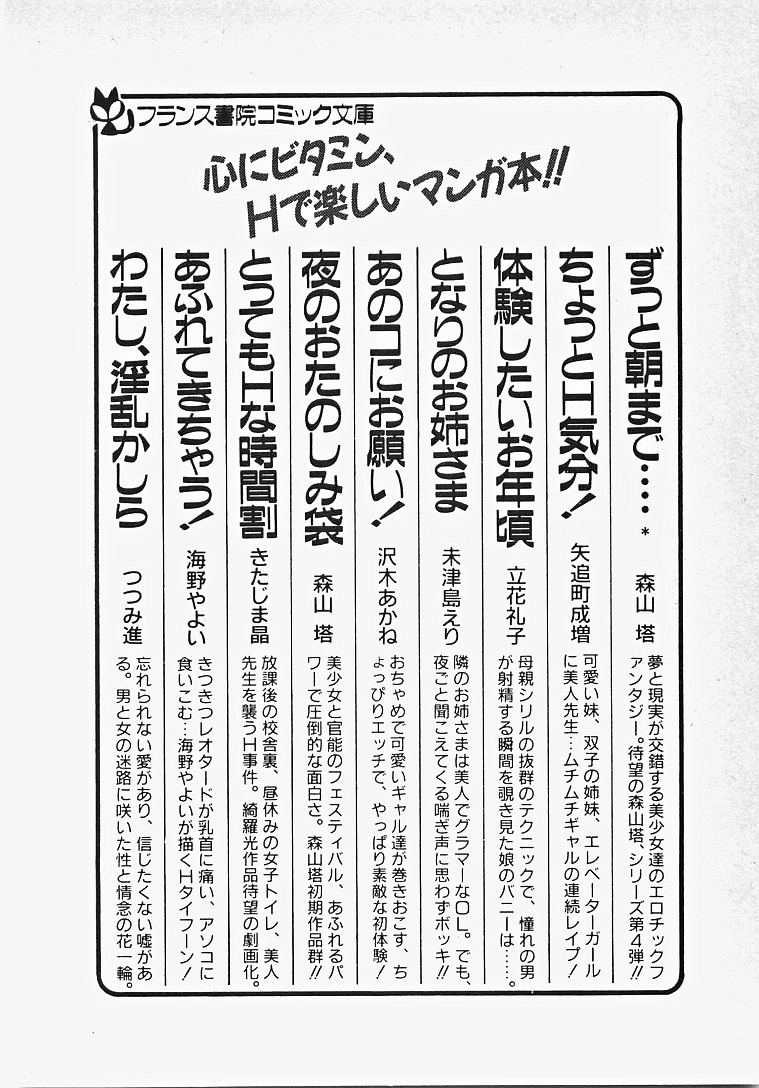 フランス書院コミック文庫
心にビタミン、
Hで楽しいマンガ本!!
ずっと朝まで‥‥*
森山 塔
夢と現実が交錯する美少女達のエロチックフ
ァンタジー。待望の森山塔、シリーズ第4弾!!
ちょっとH気分!
矢追町成増
可愛い妹、双子の姉妹、エレベーターガール
に美人先生…ムチムチギャルの連続レイプ!
体験したいお年頃
立花礼子
母親シリルの抜群のテクニックで、憧れの男
が射精する瞬間を覗き見た娘のバニーは……。
となりのお姉さま
未津島えり
隣のお姉さまは美人でグラマーなOL。でも、
夜ごと聞こえてくる喘ぎ声に思わずボッキ!!
あのコにお願い!
沢木あかね
おちゃめで可愛いギャル達が巻きおこす、ち
ょっぴりエッチで、やっぱり素敵な初体験!
夜のおたのしみ袋
森山 塔
美少女と官能のフェスティバル、あふれるパ
ワーで圧倒的な面白さ。森山塔初期作品群!!
とってもHな時間割
きたじま晶
放課後の校舎裏、昼休みの女子トイレ、美人
先生を襲うH事件。綺羅光作品待望の劇画化。
あふれてきちゃう!
海野やよい
きつきつレオタードが乳首に痛い、アソコに
食いこむ…海野やよいが描くHタイフーン!
わたし、淫乱かしら
つつみ進
忘れられない愛があり、信じたくない嘘があ
る。男と女の迷路に咲いた性と情念の花一輪。